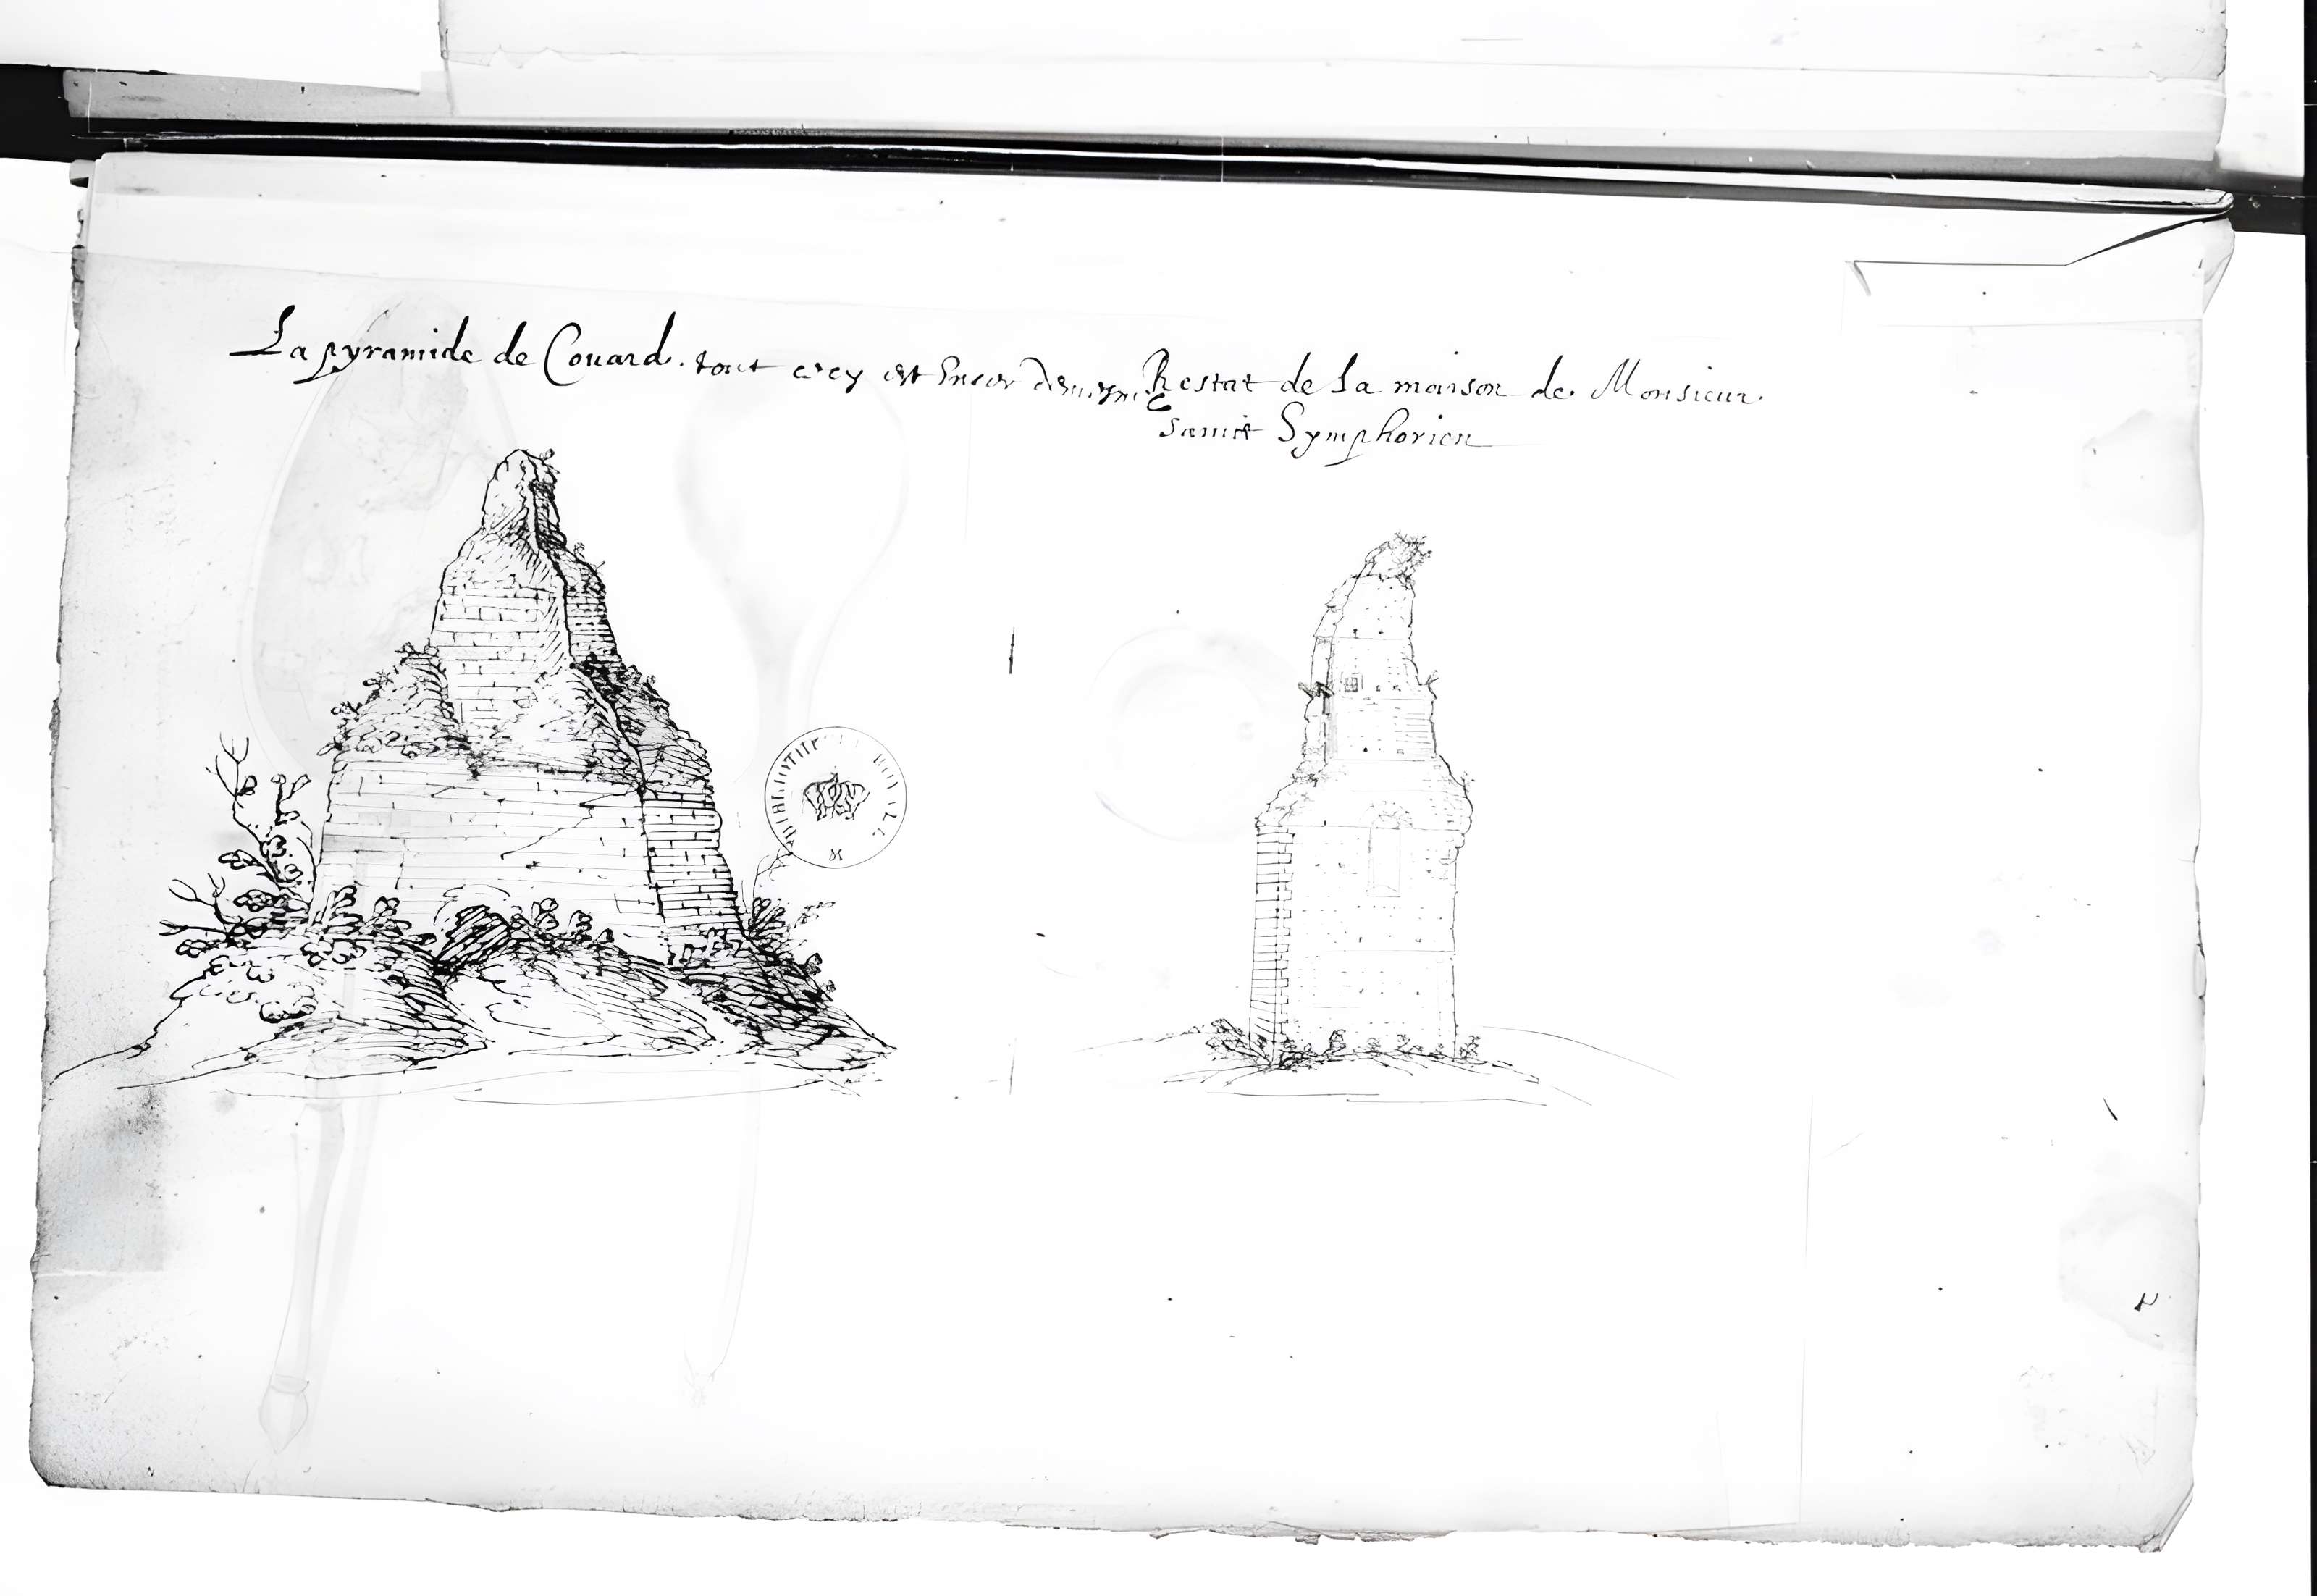 La pyramide de Couard. tout cecy est Encor de mesme
Restat de la maison de Monsieur.
Sainct Symphorien